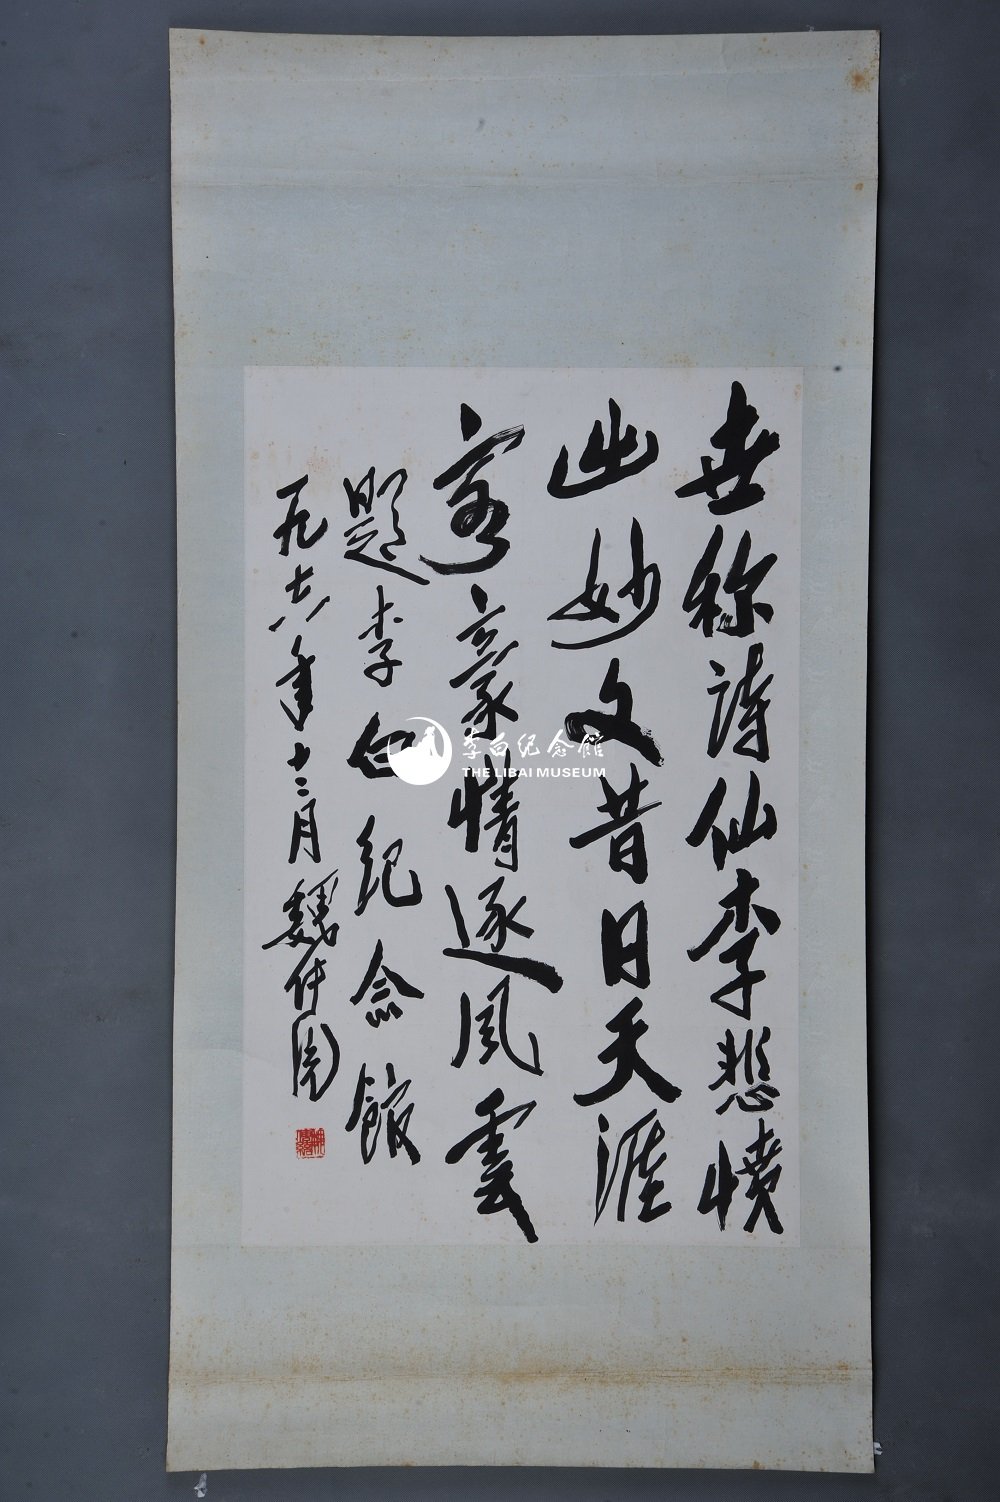 世称诗仙李悲愤
出妙文昔日天涯
客豪情逐风云
题李白纪念馆
一九六八年十二月魏传统
李白纪念馆
THE LIBAI MUSEUM